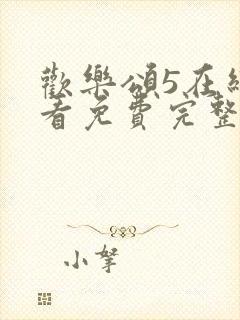 歡樂頌5在線
看免費完整
小拏